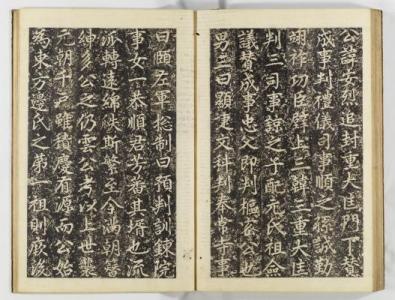 公諱安烈追封重大匡門下贊
成事判禮儀司事順之孫誠勤
翊祚功臣壁上三韓三重大匡
判三司事諒之子配元氏祖僉
議贊成事忠父即判樞密公也
男三曰顯文科判奉常寺事
曰頤右軍摠制曰預判訓鍊院
事女一恭順君芳蕃其壻也流
派轉遠綿瓞斯繁至今滿朝簪
紳多公之仍雲公考以上世襲
元朝千戶雖積慶有源而公始
為東方邊氏之第一祖則庶後